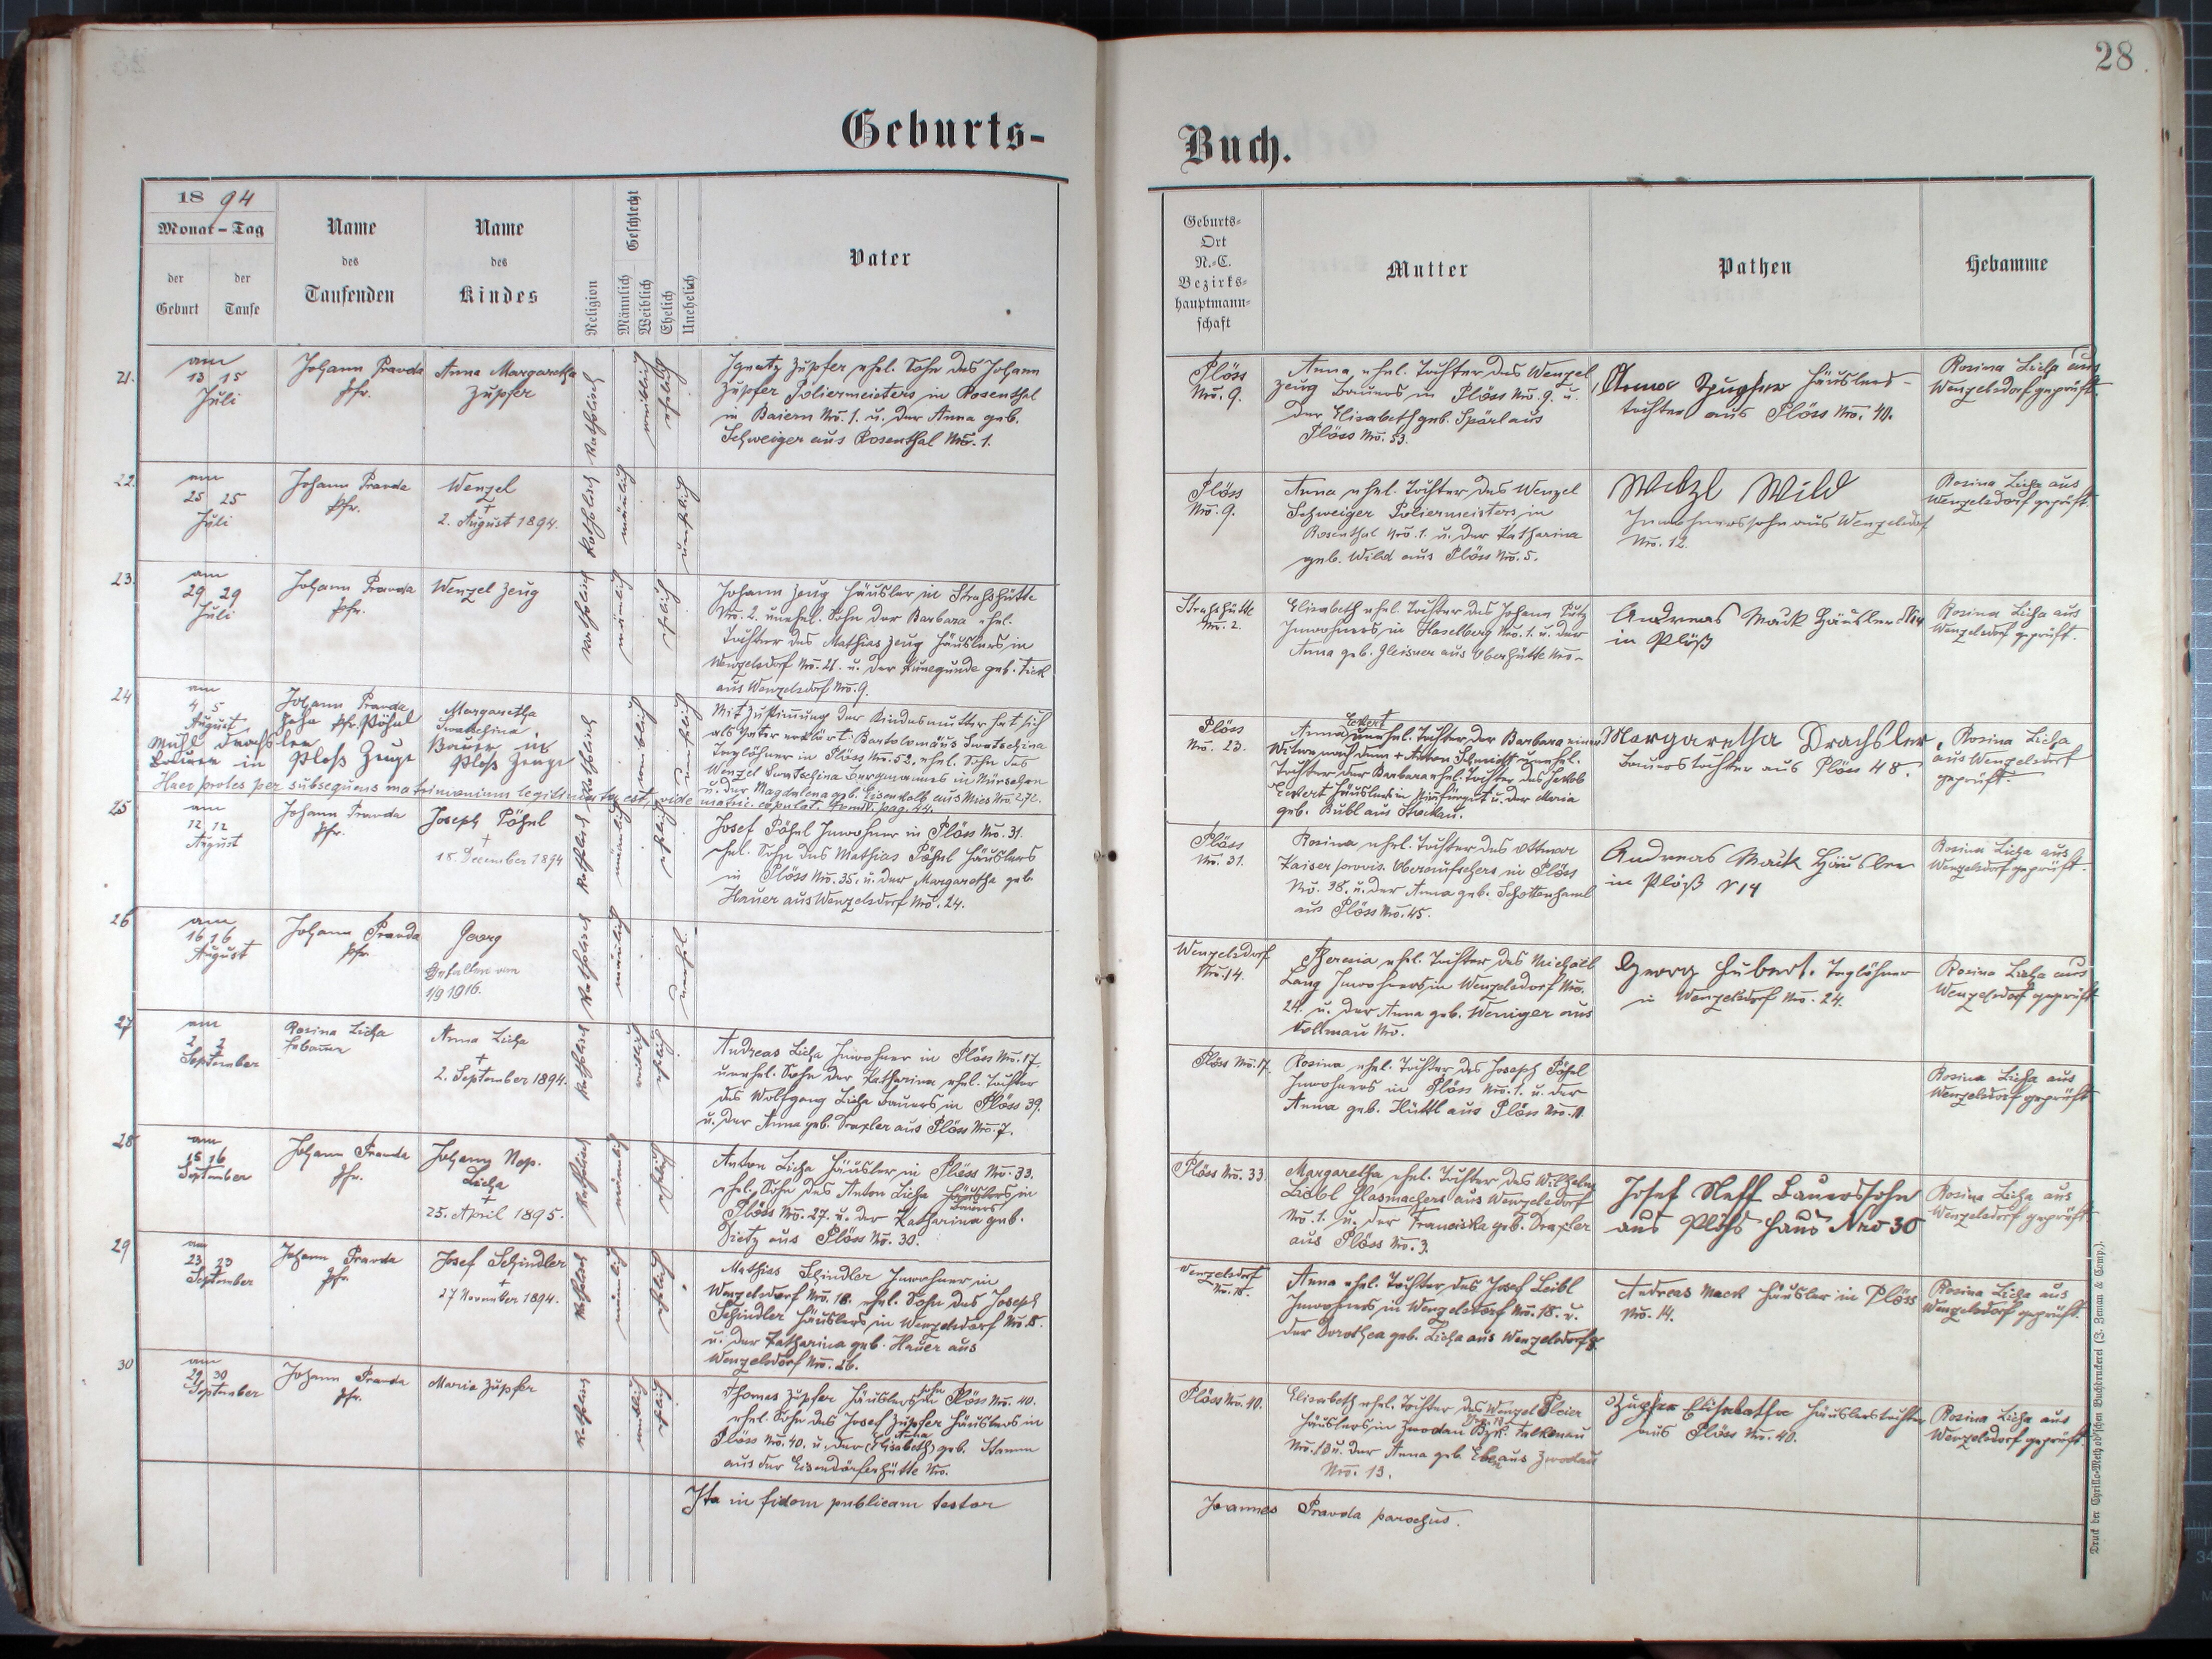 28
Geburts-
Buch.
18 94
Monat - Tag
der Geburt
der Taufe
Name
des
Taufenden
Name
des
Kindes
Religion
Geschlecht
Männlich
Weiblich
Ehelich
Unehelich
Vater
Geburts-
Ort
N.-C.
Bezirks-
hauptmann-
schaft
Mutter
Pathen
Hebamme
21.
am
13 15
Juli
Johann Pravda
Pfr.
Anna Margaretha
Zupfer
Katholisch
weiblich
ehelich
Ignatz Zupfer ehel. Sohn des Johann
Zupfer Poliermeisters in Rosenthal
in Baiern Nro. 1. u. der Anna geb.
Schweiger aus Rosenthal Nro. 1.
Plöss
Nro. 9.
Anna, ehel. Tochter des Wenzel
Zeug Bauers in Plöss Nro. 9. u.
der Elisabeth geb. Spärl aus
Plöss Nro. 53.
Anna Zupfer Häuslers-
tochter aus Plöss Nro. 40.
Rosina Licha aus
Wenzelsdorf geprüft.
22.
am
25 25
Juli
Johann Pravda
Pfr.
Wenzel
+
2. August 1894.
Katholisch
männlich
unehelich
Plöss
Nro. 9.
Anna ehel. Tochter des Wenzel
Schweiger Poliermeisters in
Rosenthal Nro. 1. u. der Katharina
geb. Wild aus Plöss Nro. 5.
Wild
Inwohnerssohn aus Wenzelsdorf
Nro. 12.
Rosina Licha aus
Wenzelsdorf geprüft.
23.
am
29 29
Juli
Johann Pravda
Pfr.
Wenzel Zeug
Katholisch
männlich
ehelich
Johann Zeug Häusler in Strasshütte
Nro. 2. unehel. Sohn der Barbara ehel.
Tochter des Mathias Zeug Häuslers in
Wenzelsdorf Nro. 21. u. der Kunegunde geb. Fick
aus Wenzelsdorf Nro. 9.
Strasshütte
Nro. 2.
Elisabeth ehel. Tochter des Johann Putz
Inwohners in Haselberg Nro. 1. u. der
Anna geb. Gleisner aus Oberhütte Nro-
Andreas Mack Häusler N14
in Plöß
Rosina Licha aus
Wenzelsdorf geprüft.
24
am
4 5
August
Johann Pravda
Pfr.
Margaretha
Swatschina
Bauer in
Plöss Zeuge
Bauer in Plöss Zeuge
Haec proles per subsequens matrimonium legitimata est, vide matric. copulat. Tom IV. pag. 44.
Katholisch
weiblich
unehelich
Mit Zustimmung der Kindesmutter hat sich
als Vater erklärt: Bartolomäus Swatschina
Taglöhner in Plöss Nro. 52, ehel. Sohn des
Wenzel Swatschina Bergmannes in Nürschan
u. der Magdalena geb. Eisenkolb aus Mies Nro. 272.
Plöss
Nro. 23.
Eckert
Anna unehel. Tochter der Barbara
Witwe nach dem + Anton Schmidt unehel.
Tochter der Barbara ehel. Tochter des Jakob
Eckert Häuslers in u. der Maria
geb. Bubl aus Stockau.
Margaretha Drachsler,
Bauerstochter aus Plöss 48.
Rosina Licha
aus Wenzelsdorf
geprüft.
25
am
12 12
August
Johann Pravda
Pfr.
Joseph Pöhnl
+
18. December 1894
Katholisch
männlich
ehelich
Josef Pöhnl Inwohner in Plöss Nro. 31.
ehel. Sohn des Mathias Pöhnl Häuslers
in Plöss Nro. 35. u. der Margaretha geb.
Hauer aus Wenzelsdorf Nro. 24.
Plöss
Nro. 31.
Rosina ehel. Tochter des Ottmar
Kaiser provis. Oberaufsehers in Plöss
Nro. 38. u. der Anna geb. Schottenhaml
aus Plöss Nro. 45.
Andreas Mack Häusler
in Plöß N 14
Rosina Licha aus
Wenzelsdorf geprüft.
26
am
16 16
August
Johann Pravda
Pfr.
Georg
Gefallen am
1/9 1916.
Katholisch
männlich
unehel.
Wenzelsdorf
Nro. 14.
Theresia ehel. Tochter des Michael
Lang Inwohners in Wenzelsdorf Nro.
24. u. der Anna geb. Weniger aus
Vollmau Nro.
Georg Hubert. Taglöhner
in Wenzelsdorf Nro. 24.
Rosina Licha aus
Wenzelsdorf geprüft
27
am
2 2
September
Rosina Licha
Hebamme
Anna Licha
+
2. September 1894.
Katholisch
weiblich
ehelich
Andreas Licha Inwohner in Plöss Nro. 17.
unehel. Sohn der Katharina ehel. Tochter
des Wolfgang Licha Bauers in Plöss 39.
u. der Anna geb. Drexler aus Plöss Nro. 7.
Plöss Nro. 17.
Rosina ehel. Tochter des Joseph Pöhnl
Inwohners in Plöss Nro. 1. u. der
Anna geb. Hüttl aus Plöss Nro. 11.
Rosina Licha aus
Wenzelsdorf geprüft
28
am
15 16
September
Johann Pravda
Pfr.
Johann Nep.
Licha
+
25. April 1895.
Katholisch
männlich
ehelich
Anton Licha Häusler in Plöss Nro. 33.
ehel. Sohn des Anton Licha Häuslers in
Bauers
Plöss Nro. 27. u. der Katharina geb.
Zietz aus Plöss Nro. 30.
Plöss Nro. 33.
Margaretha ehel. Tochter des Wilhelm
Liebl Glasmachers aus Wenzelsdorf
Nro. 1. u. der Franciska geb. Drexler
aus Plöss Nro. 3.
Josef Neff Bauerssohn
aus Plöss Haus Nro 30
Rosina Licha aus
Wenzelsdorf geprüft.
29
am
23 23
September
Johann Pravda
Pfr.
Josef Schindler
+
27 November 1894.
Katholisch
männlich
ehelich
Mathias Schindler Inwohner in
Wenzelsdorf Nro. 18. ehel. Sohn des Joseph
Schindler Häuslers in Wenzelsdorf Nro. 8.
u. der Katharina geb. Hauer aus
Wenzelsdorf Nro. 26.
Wenzelsdorf
Nro. 18.
Anna ehel. Tochter des Josef Leibl
Inwohners in Wenzelsdorf Nro. 18. u.
der Dorothea geb. Licha aus Wenzelsdorf 8.
Andreas Mack Häusler in Plöss
Nro. 14.
Rosina Licha aus
Wenzelsdorf geprüft.
30
am
29 30
September
Johann Pravda
Pfr.
Maria Zupfer
Katholisch
weiblich
ehelich
Thomas Zupfer Häuslerssohn Plöss Nro. 40.
ehel. Sohn des Josef Zupfer Häuslers in
Anna
Plöss Nro. 40. u. der (Elisabeth) geb. Hamm
aus der Eisendörferhütte Nro.
Plöss Nro. 40.
Elisabeth ehel. Tochter des Wenzel Pleier
Häuslers in Zwodau Bzk. Falkenau
Nro. 13 u. der Anna geb. aus Zwodau
Nro. 13.
Zupfer Elisabetha Häuslerstochter
aus Plöss Nro. 40.
Rosina Licha aus
Wenzelsdorf geprüft.
Ita in fidem publicam testor
Joannes Pravda parochus.
Druck der Cyrillo-Method'schen Buchdruckerei (J. Zeman & Comp.).